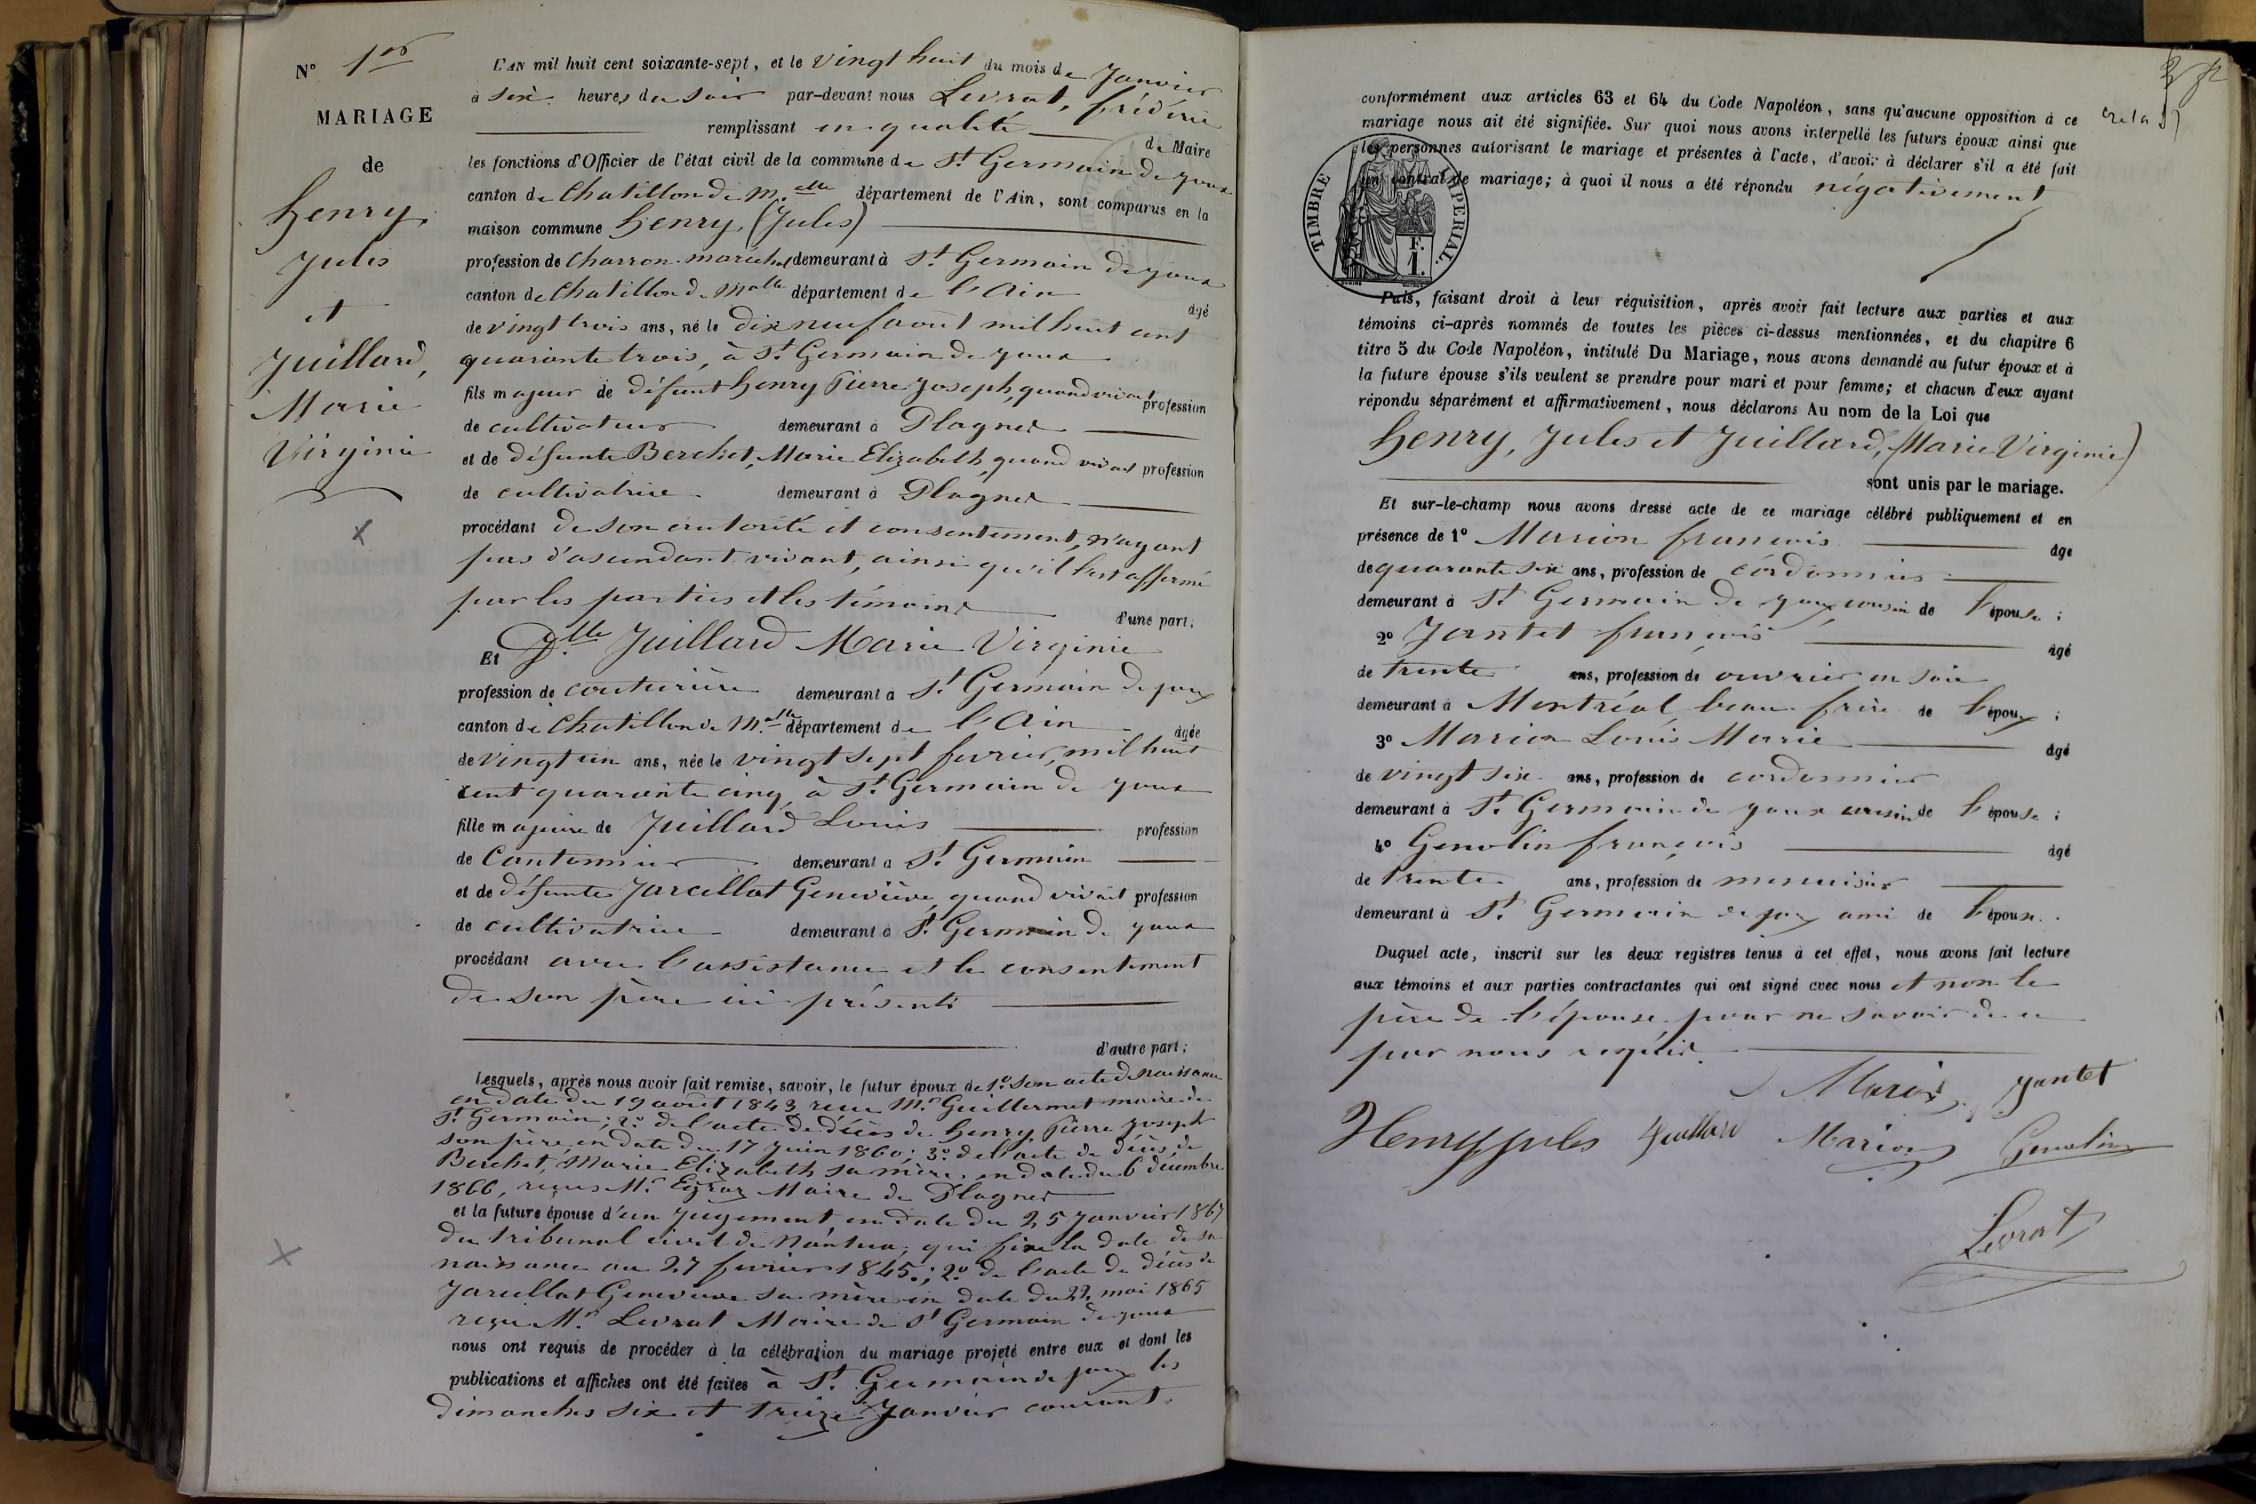 N° 1er
MARIAGE
de
Henry
Jules
et
Juillard,
Marie
Virginie
L'AN mil huit cent soixante-sept, et le vingt huit du mois de Janvier
à six heures du soir par-devant nous Levrat, frédéric
remplissant en qualité de Maire
les fonctions d'Officier de l'état civil de la commune de St Germain de joux
canton de Chatillon de M.alle département de l'Ain, sont comparus en la
maison commune Henry, (Jules)
profession de Charron-marechal demeurant à St Germain de joux
canton de Chatillon d. Malle département de l'Ain agé
de vingt trois ans, né le dix neuf août mil huit cent
quarante trois, à St Germain de joux
fils majeur de défunt Henry Pierre Joseph, quand vivait profession
de cultivateur demeurant à Plagnes
et de défunte Berchet, Marie Elizabeth, quand vivait profession
de cultivatrice demeurant à Plagnes
procédant de son autorité et consentement, n'ayant
pas d'ascendant vivant, ainsi qu'il l'est affirmé
par les parties et les témoins d'une part;
Et D.lle Juillard Marie Virginie
profession de couturière demeurant à St Germain de joux
canton de Chatillon de M.alle département de l'Ain agée
de vingt un ans, née le vingt sept fevrier, mil huit
cent quarante cinq, à St Germain de joux
fille majeure de Juillard Louis profession
de Cantonnier demeurant à St Germain
et de défunte Jarcellat Geneviève, quand vivait profession
de cultivatrice demeurant à St Germain de joux
procédant avec l'assistance et le consentement
de son père ici présent
d'autre part;
Lesquels, après nous avoir fait remise, savoir, le futur époux de 1° son acte de naissance
en date du 19 août 1843 reçu M.r Guillermet maire de
St Germain; 2° de l'acte de décès de Henry Pierre Joseph
son père, en date du 17 juin 1860; 3° de l'acte de décès de
Berchet, Marie Elizabeth sa mère, en date du 6 décembre
1866, reçus M.r Maire de Plagnes
et la future épouse d'un jugement, en date du 25 Janvier 1867
du tribunal civil de Nantua, qui fixe la date de sa
naissance au 27 fevrier 1845; 2° de l'acte de décès de
Jarcellat Geneviève sa mère en date du 22 mai 1865
reçu M.r Levrat Maire de St Germain de joux
nous ont requis de procéder à la célébration du mariage projeté entre eux et dont les
publications et affiches ont été faites à St Germain de joux les
dimanches six et treize Janvier courant.
conformément aux articles 63 et 64 du Code Napoléon, sans qu'aucune opposition à ce
mariage nous ait été signifiée. Sur quoi nous avons interpellé les futurs époux ainsi que
les personnes autorisant le mariage et présentes à l'acte, d'avoir à déclarer s'il a été fait
un contrat de mariage; à quoi il nous a été répondu négativement
TIMBRE IMPERIAL.
F.
1.
Puis, faisant droit à leur réquisition, après avoir fait lecture aux parties et aux
témoins ci-après nommés de toutes les pièces ci-dessus mentionnées, et du chapitre 6
titre 5 du Code Napoléon, intitulé Du Mariage, nous avons demandé au futur époux et à
la future épouse s'ils veulent se prendre pour mari et pour femme; et chacun d'eux ayant
répondu séparément et affirmativement, nous déclarons Au nom de la Loi que
Henry, Jules et Juillard, (Marie Virginie)
sont unis par le mariage.
Et sur-le-champ nous avons dressé acte de ce mariage célébré publiquement et en
présence de 1° Marion françois âgé
de quarante six ans, profession de cordonnier
demeurant à St Germain de joux, cousin de l'épouse;
2° Jantet françois âgé
de trente ans, profession de ouvrier en soie
demeurant à Montréal beau frère de l'époux;
3° Marion Louis Marie âgé
de vingt six ans, profession de cordonnier
demeurant à St Germain de joux cousin de l'épouse;
4° Genolin françois âgé
de trente ans, profession de menuisier
demeurant à St Germain de joux ami de l'époux.
Duquel acte, inscrit sur les deux registres tenus à cet effet, nous avons fait lecture
aux témoins et aux parties contractantes qui ont signé avec nous et non le
père de l'épouse pour ne savoir de ce
par nous requis.
Marion Jantet
Henry jules Juillard Marion Genolin
Levrat